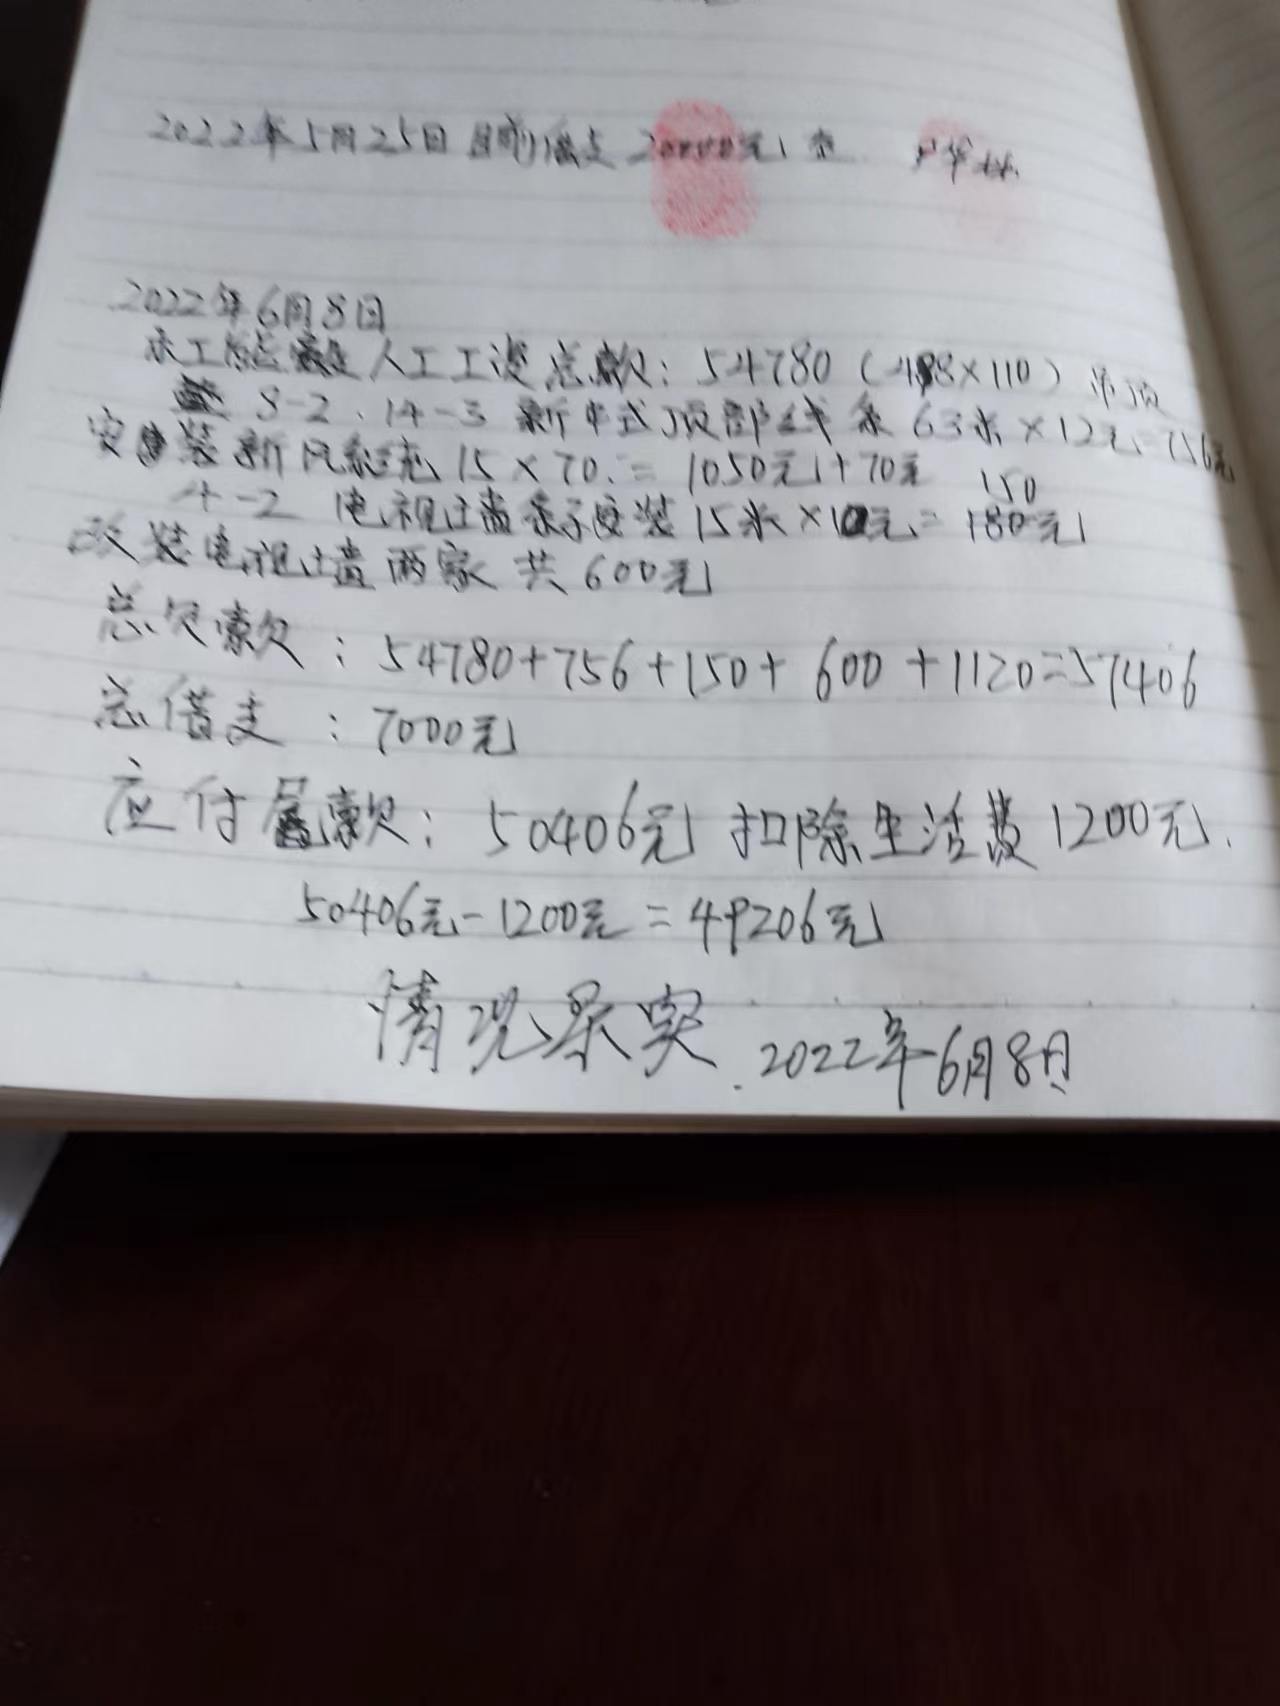 2022年5月25日目前借支20000元整 卢华林
2022年6月8日
木工 人工工资总款：54780（498×110）吊顶
8-2、14-3 新中式顶部线条 63米×12元=756元
安装新风系统 15×70.=1050元+70元 150
4-2 电视墙条子安装 15米×10元=180元
改装电视墙两家共600元
总欠款：54780+756+150+600+1120=57406
总借支：7000元
应付尾款：50406元 扣除生活费1200元.
50406元-1200元=49206元
情况果实.2022年6月8日